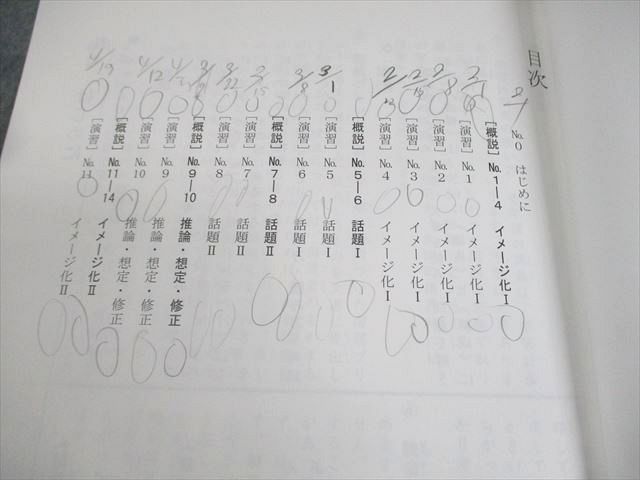 目次
2/1 No.0 はじめに
[概説] No.1—4 イメージ化Ⅰ
2/1 [演習] No.1 イメージ化Ⅰ
2/8 [演習] No.2 イメージ化Ⅰ
2/15 [演習] No.3 イメージ化Ⅰ
2/23 [演習] No.4 イメージ化Ⅰ
[概説] No.5—6 話題Ⅰ
3/1 [演習] No.5 話題Ⅰ
3/8 [演習] No.6 話題Ⅰ
[概説] No.7—8 話題Ⅱ
3/15 [演習] No.7 話題Ⅱ
3/22 [演習] No.8 話題Ⅱ
[概説] No.9—10 推論・想定・修正
[演習] No.9 推論・想定・修正
4/12 [演習] No.10 推論・想定・修正
[概説] No.11—14 イメージ化Ⅱ
4/19 [演習] No.11 イメージ化Ⅱ